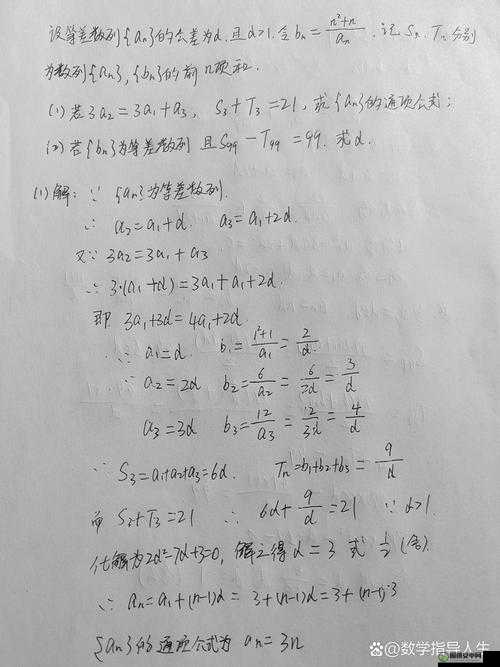 设等差数列{an}的公差为d,且d>1,令bn=(n²+n)/an,记Sn、Tn分别
为数列{an},{bn}的前n项和.
(1)若3a2=3a1+a3, S3+T3=21,求{an}的通项公式;
(2)若{bn}为等差数列 且S99-T99=99.求d.
(1)解: ∵ {an}为等差数列.
∴ a2=a1+d. a3=a1+2d.
又∵ 3a2=3a1+a3
∴ 3·(a1+d)=3a1+a1+2d.
即 3a1+3d=4a1+2d
∴ a1=d. b1=(1²+1)/a1=2/d.
∴ a2=2d b2=6/a2=6/2d=3/d
a3=3d b3=12/a3=12/3d=4/d
∵ S3=a1+a2+a3=6d. Tn=b1+b2+b3=9/d
而 S3+T3=21 ∴ 6d+9/d=21 ∵ d>1
化解为2d²-7d+3=0,解之得d=3 或 1/2(舍).
∴ an=a1+(n-1)d=3+(n-1)d=3+(n-1)·3
{an}的通项公式为 an=3n
数学指导人生